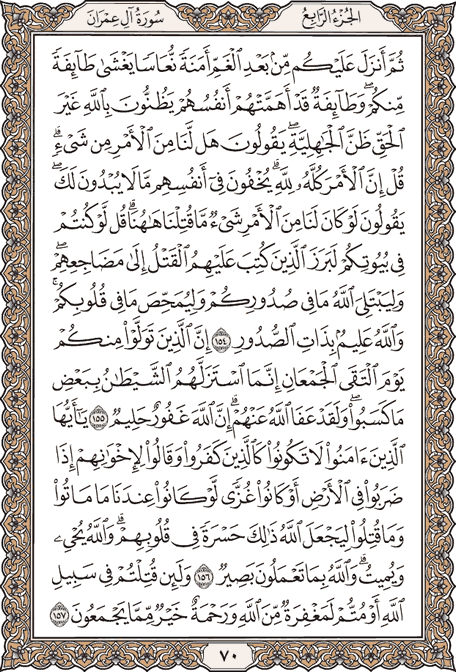 سُورَةُ آلِ عِمْرَانَ
الجُزْءُ الرَّابِعُ
ثُمَّ أَنزَلَ عَلَيْكُم مِّنۢ بَعْدِ ٱلْغَمِّ أَمَنَةً نُّعَاسًا يَغْشَىٰ طَآئِفَةً
مِّنكُمْۖ وَطَآئِفَةٌ قَدْ أَهَمَّتْهُمْ أَنفُسُهُمْ يَظُنُّونَ بِٱللَّهِ غَيْرَ
ٱلْحَقِّ ظَنَّ ٱلْجَٰهِلِيَّةِۖ يَقُولُونَ هَل لَّنَا مِنَ ٱلْأَمْرِ مِن شَىْءٍۗ
قُلْ إِنَّ ٱلْأَمْرَ كُلَّهُۥ لِلَّهِۗ يُخْفُونَ فِىٓ أَنفُسِهِم مَّا لَا يُبْدُونَ لَكَۖ
يَقُولُونَ لَوْ كَانَ لَنَا مِنَ ٱلْأَمْرِ شَىْءٌ مَّا قُتِلْنَا هَٰهُنَاۗ قُل لَّوْ كُنتُمْ
فِى بُيُوتِكُمْ لَبَرَزَ ٱلَّذِينَ كُتِبَ عَلَيْهِمُ ٱلْقَتْلُ إِلَىٰ مَضَاجِعِهِمْۖ
وَلِيَبْتَلِىَ ٱللَّهُ مَا فِى صُدُورِكُمْ وَلِيُمَحِّصَ مَا فِى قُلُوبِكُمْۚ
وَٱللَّهُ عَلِيمٌۢ بِذَاتِ ٱلصُّدُورِ ١٥٤ إِنَّ ٱلَّذِينَ تَوَلَّوْا۟ مِنكُمْ
يَوْمَ ٱلْتَقَى ٱلْجَمْعَانِ إِنَّمَا ٱسْتَزَلَّهُمُ ٱلشَّيْطَٰنُ بِبَعْضِ
مَا كَسَبُوا۟ۖ وَلَقَدْ عَفَا ٱللَّهُ عَنْهُمْۗ إِنَّ ٱللَّهَ غَفُورٌ حَلِيمٌ ١٥٥ يَٰٓأَيُّهَا
ٱلَّذِينَ ءَامَنُوا۟ لَا تَكُونُوا۟ كَٱلَّذِينَ كَفَرُوا۟ وَقَالُوا۟ لِإِخْوَٰنِهِمْ إِذَا
ضَرَبُوا۟ فِى ٱلْأَرْضِ أَوْ كَانُوا۟ غُزًّى لَّوْ كَانُوا۟ عِندَنَا مَا مَاتُوا۟
وَمَا قُتِلُوا۟ لِيَجْعَلَ ٱللَّهُ ذَٰلِكَ حَسْرَةً فِى قُلُوبِهِمْۗ وَٱللَّهُ يُحْىِۦ
وَيُمِيتُۗ وَٱللَّهُ بِمَا تَعْمَلُونَ بَصِيرٌ ١٥٦ وَلَئِن قُتِلْتُمْ فِى سَبِيلِ
ٱللَّهِ أَوْ مُتُّمْ لَمَغْفِرَةٌ مِّنَ ٱللَّهِ وَرَحْمَةٌ خَيْرٌ مِّمَّا يَجْمَعُونَ ١٥٧
٧٠